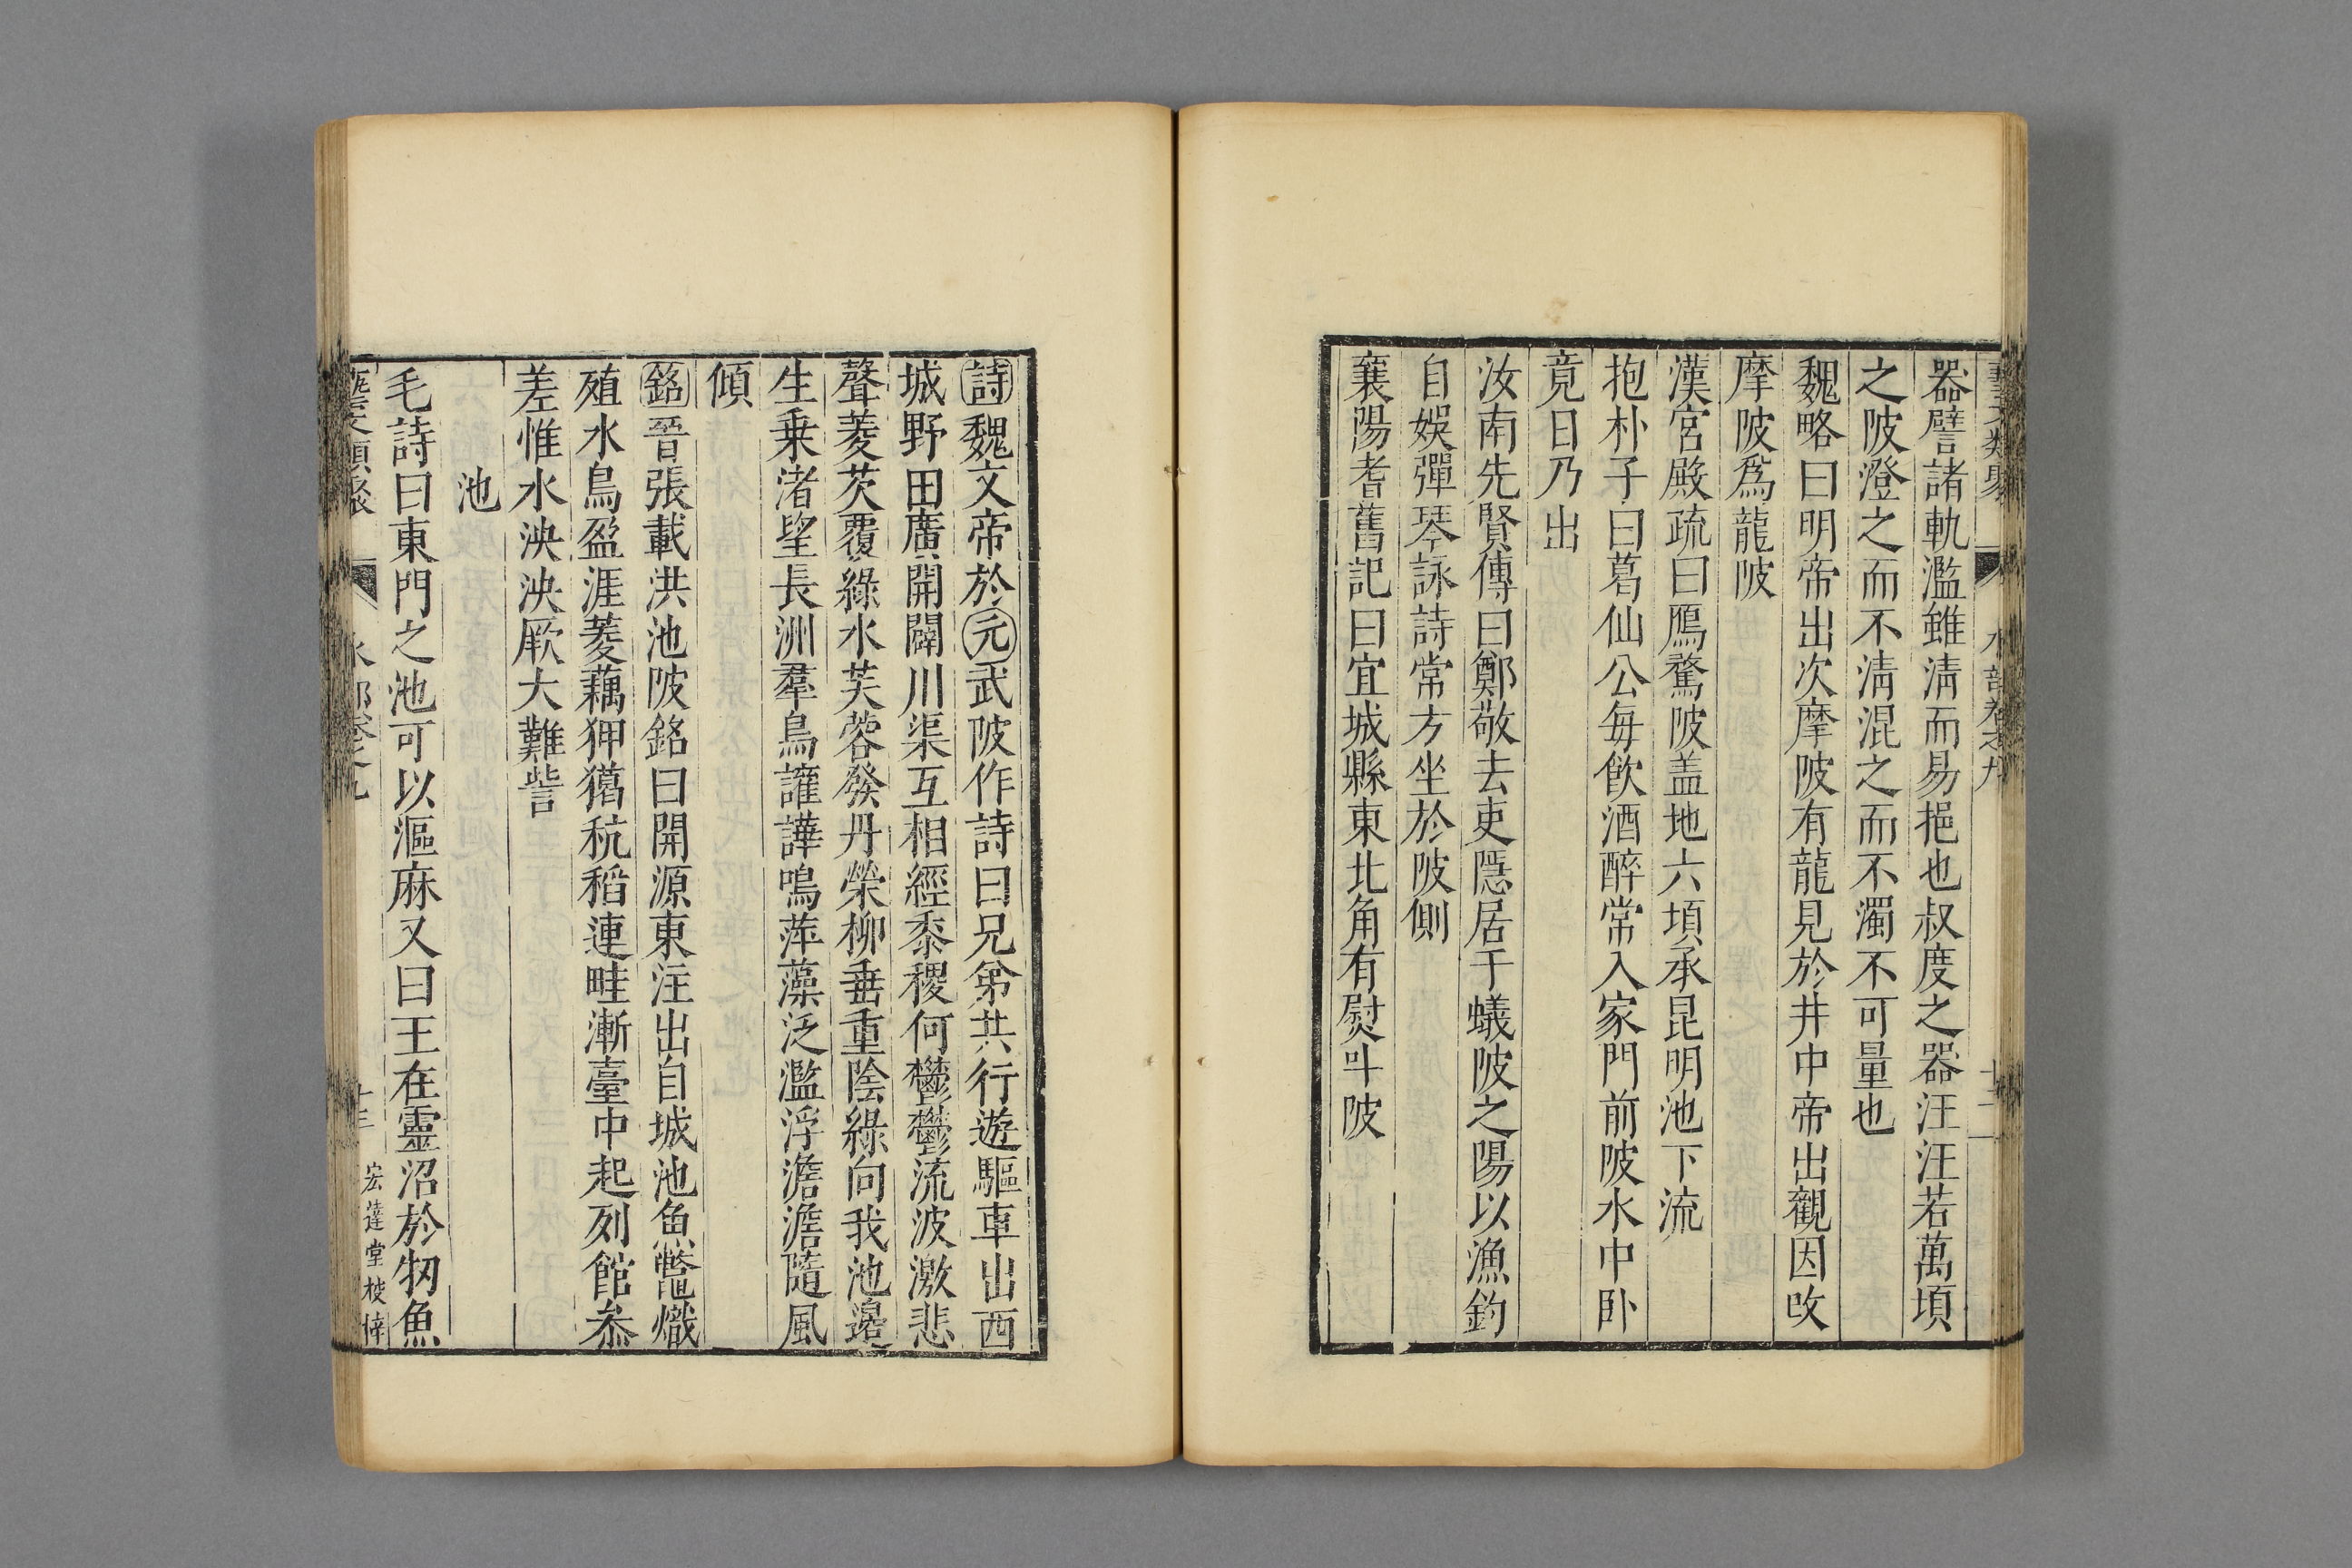 藝文類聚 水部卷之九 十二
器譬諸軌濫雖淸而易挹也叔度之器汪汪若萬頃
之陂澄之而不淸混之而不濁不可量也
魏略曰明帝出次摩陂有龍見於井中帝出觀因改
摩陂爲龍陂
漢宮殿疏曰鴈鶩陂盖地六頃承昆明池下流
抱朴子曰葛仙公每飮酒醉常入家門前陂水中卧
竟日乃出
汝南先賢傳曰鄭敬去吏隱居于蟻陂之陽以漁釣
自娛彈琴詠詩常方坐於陂側
襄陽耆舊記曰宜城縣東北角有熨斗陂
詩魏文帝於元武陂作詩曰兄弟共行遊驅車出西
城野田廣開闢川渠互相經黍稷何鬱鬱流波激悲
聲菱芡覆綠水芙蓉發丹榮柳垂重陰綠向我池邉
生乗渚望長洲羣鳥讙譁鳴萍藻泛濫浮澹澹隨風
傾
銘晉張載洪池陂銘曰開源東注出自城池魚鼈熾
殖水鳥盈涯菱藕狎獦秔稻連畦漸臺中起列館叅
差惟水泱泱厥大難訾
池
毛詩曰東門之池可以漚麻又曰王在靈沼於牣魚
藝文類聚 水部卷之九 十三 宏達堂校